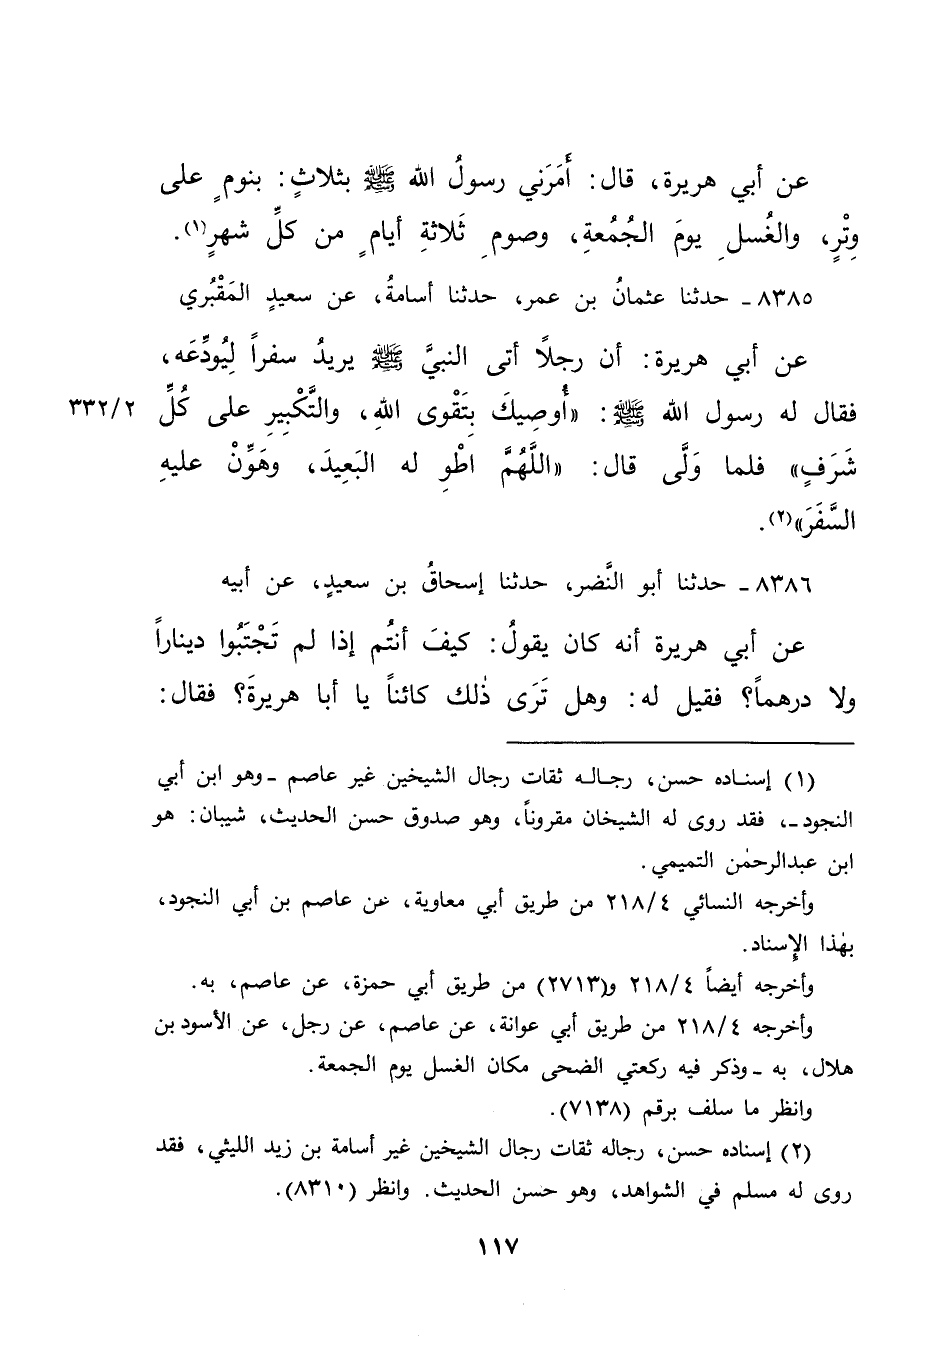 عن أبي هريرة، قال: أَمَرَني رسولُ الله ﷺ بثلاثٍ: بنومٍ على
وِتْرٍ، والغُسلِ يومَ الجُمُعةِ، وصومِ ثَلاثةِ أيامٍ من كلِّ شهرٍ(١).
٨٣٨٥ ـ حدثنا عثمانُ بن عمر، حدثنا أسامةُ، عن سعيدٍ المَقْبُري
عن أبي هريرة: أن رجلًا أتى النبيَّ ﷺ يريدُ سفراً لِيُودِّعَه،
فقال له رسول الله ﷺ: «أُوصِيكَ بِتَقْوى اللهِ، والتَّكْبِيرِ على كُلِّ ٣٣٢/٢
شَرَفٍ» فلما وَلَّى قال: «اللَّهُمَّ اطْوِ له البَعِيدَ، وهَوِّنْ عليهِ
السَّفَرَ»(٢).
٨٣٨٦ ـ حدثنا أبو النَّضر، حدثنا إسحاقُ بن سعيدٍ، عن أبيه
عن أبي هريرة أنه كان يقولُ: كيفَ أنتُم إذا لم تَجْتَبُوا ديناراً
ولا درهماً؟ فقيل له: وهل تَرَى ذٰلك كائناً يا أبا هريرةَ؟ فقال:
(١) إسناده حسن، رجاله ثقات رجال الشيخين غير عاصم ـ وهو ابن أبي
النجود ـ، فقد روى له الشيخان مقروناً، وهو صدوق حسن الحديث، شيبان: هو
ابن عبدالرحمٰن التميمي.
وأخرجه النسائي ٢١٨/٤ من طريق أبي معاوية، عن عاصم بن أبي النجود،
بهٰذا الإِسناد.
وأخرجه أيضاً ٢١٨/٤ و(٢٧١٣) من طريق أبي حمزة، عن عاصم، به.
وأخرجه ٢١٨/٤ من طريق أبي عوانة، عن عاصم، عن رجل، عن الأسود بن
هلال، به ـ وذكر فيه ركعتي الضحى مكان الغسل يوم الجمعة.
وانظر ما سلف برقم (٧١٣٨).
(٢) إسناده حسن، رجاله ثقات رجال الشيخين غير أسامة بن زيد الليثي، فقد
روى له مسلم في الشواهد، وهو حسن الحديث. وانظر (٨٣١٠).
١١٧